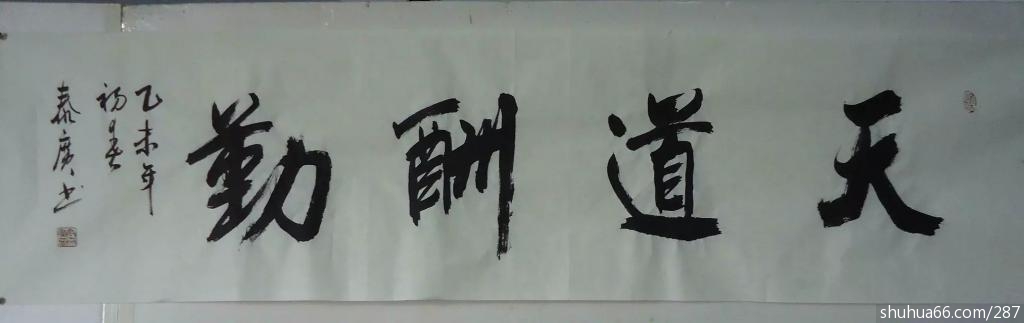 天道酬勤
乙未年
初春
泰广书
shuhua66.com/287